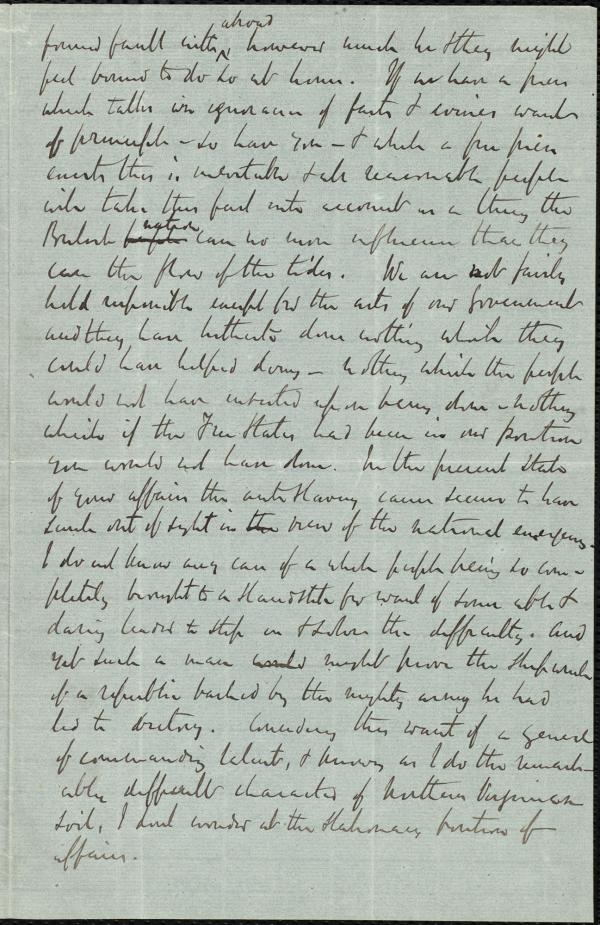 abroad
found fault with, however much he & they might
feel bound to do so at home. If we have a press
which talks in ignorance of facts & evinces want
of principle – so have you – & while a free press
exists this is inevitable & all reasonable people
will take this fact into account as a thing the
British people nation can no more influence than they
can the flow of the tides. We are not fairly
held responsible except for the acts of our Government
and they have hitherto done nothing which they
could have helped doing – nothing which the people
would not have insisted upon being done – nothing
which if the Free States had been in our position
you would not have done. In the present state
of your affairs the anti Slavery cause seems to have
sunk out of sight in the view of the national emergency.
I do not know any case of a whole people being so com-
pletely brought to a standstill for want of some able &
daring leader to step in & solve the difficulty. And
yet such a man would might prove the shipwreck
of a republic backed by the mighty army he had
led to victory. Considering this want of a general
of commanding talent, & knowing as I do the remark-
ably difficult character of Northern Virginian
soil, I dont wonder at the stationary position of
affairs.